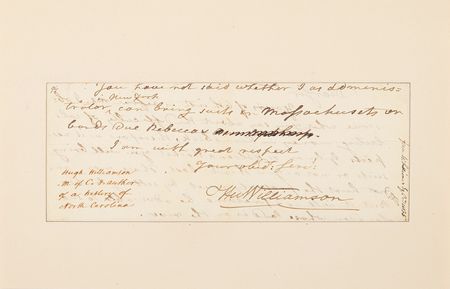 You have not said whether I as adminis=
in New York
trator, can bring suits in Massachusets on
bonds Due Rebecca
I am with great respect
Your obed. Servt
Hu Williamson
Hugh Williamson
M of C. & author
of a History of
North Carolina